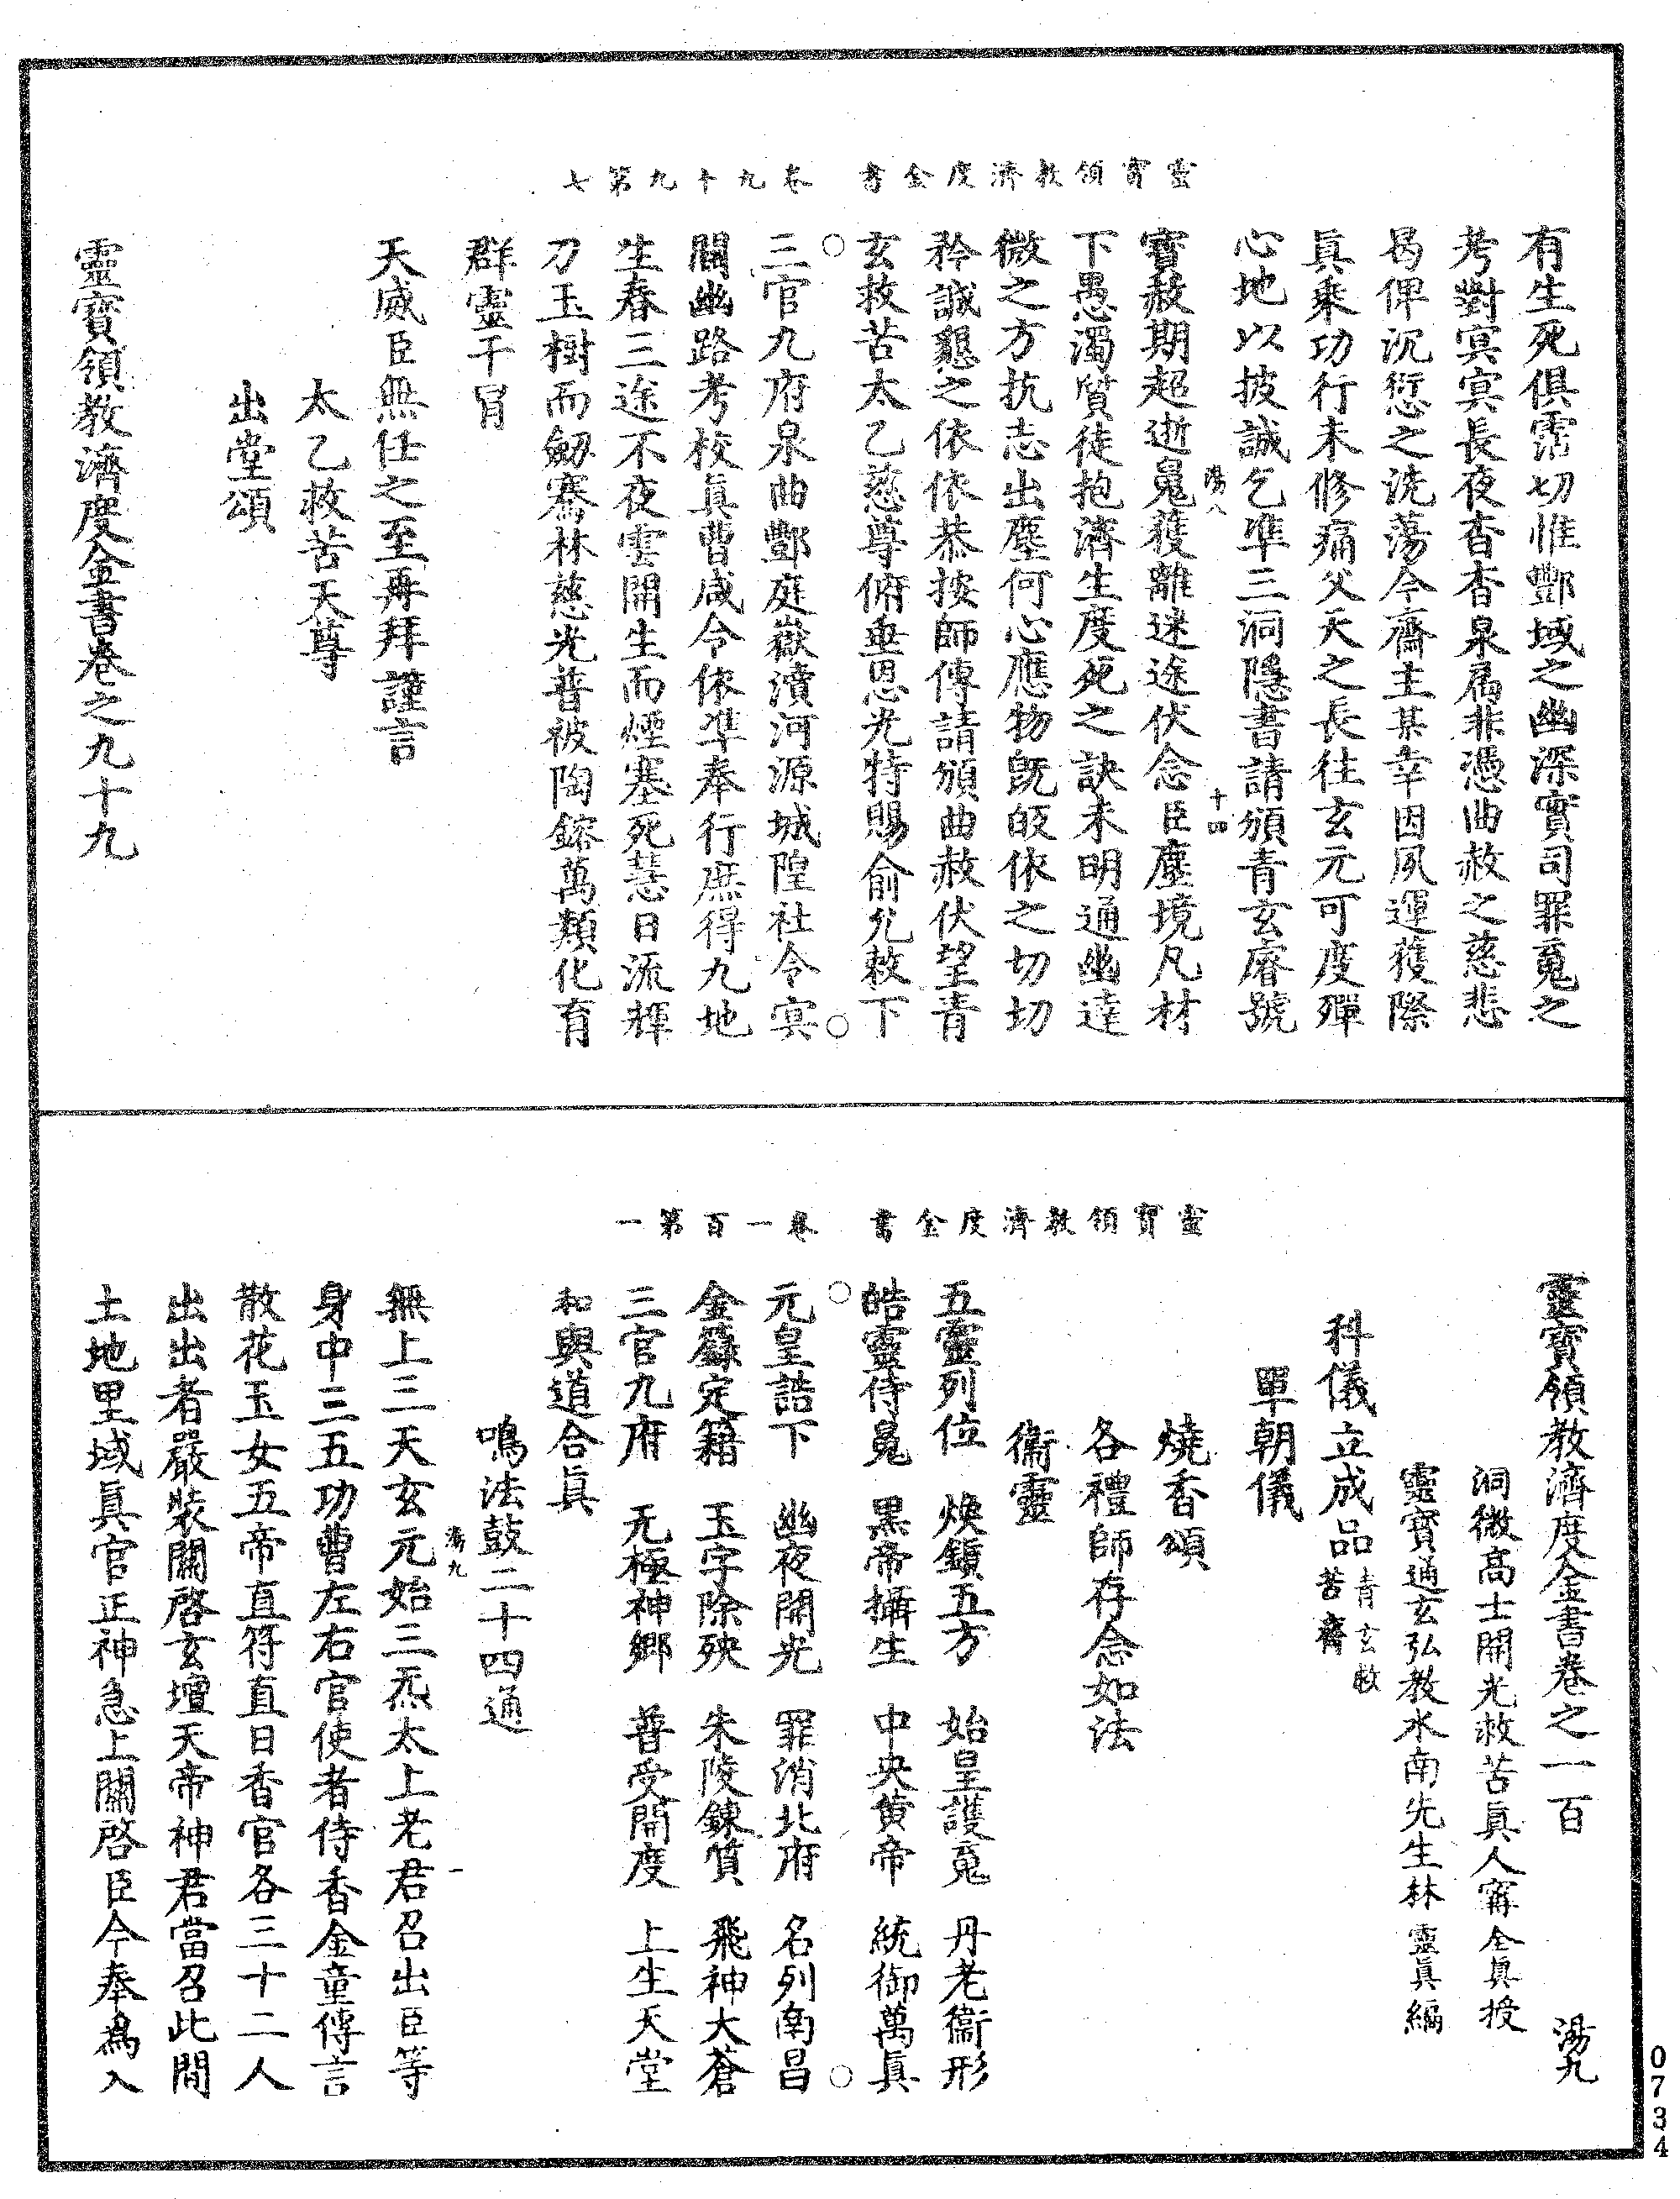 靈寶領教濟度金書　卷九十九第七
有生死俱霑切惟酆域之幽深實司罪䰟之
考對冥冥長夜杳杳泉扃非憑曲赦之慈悲
曷俾沉愆之洗蕩今齋主某幸因夙運獲際
真乘功行未修痛父天之長往玄元可度殫
心地以披誠乞準三洞隱書請頒青玄睿號
寶赦期超逝䰟獲離迷途伏念臣塵境凡材
湯八
十四
下愚濁質徒抱濟生度死之訣未明通幽達
微之方抗志出塵何心應物旣皈依之切切
矜誠懇之依依恭按師傳請頒曲赦伏望青
玄救苦太乙慈尊俯垂恩光特賜俞允敕下
三官九府泉曲酆庭嶽瀆河源城隍社令冥
關幽路考校真曹咸令依準奉行庶得九地
生春三途不夜雲開生而煙塞死慧日流輝
刀玉樹而劒騫林慈光普被陶鎔萬類化育
群靈干冐
天威臣無任之至再拜謹言
太乙救苦天尊
出堂頌
靈寶領教濟度金書卷之九十九
靈寶領教濟度金書　卷一百第一
靈寶領教濟度金書卷之一百　湯九
洞微高士開光救苦真人甯全真授
靈寶通玄弘教水南先生林靈真編
科儀立成品青玄救苦齋
單朝儀
燒香頌
各禮師存念如法
衞靈
五靈列位　煥鎖五方　始皇護䰟　丹老衞形
皓靈侍䰟　黑帝攝生　中央黄帝　統御萬真
元皇誥下　幽夜開光　罪消北府　名列南昌
金籙定籍　玉字除殃　朱陵鍊質　飛神大蒼
三官九府　无極神鄉　普受開度　上生天堂
和與道合真
鳴法鼓二十四通
湯九
一
無上三天玄元始三炁太上老君召出臣等
身中三五功曹左右官使者侍香金童傳言
散花玉女五帝直符直日香官各三十二人
出出者嚴裝關啓玄壇天帝神君當召此間
土地里域真官正神急上關啓臣今奉爲入
0734